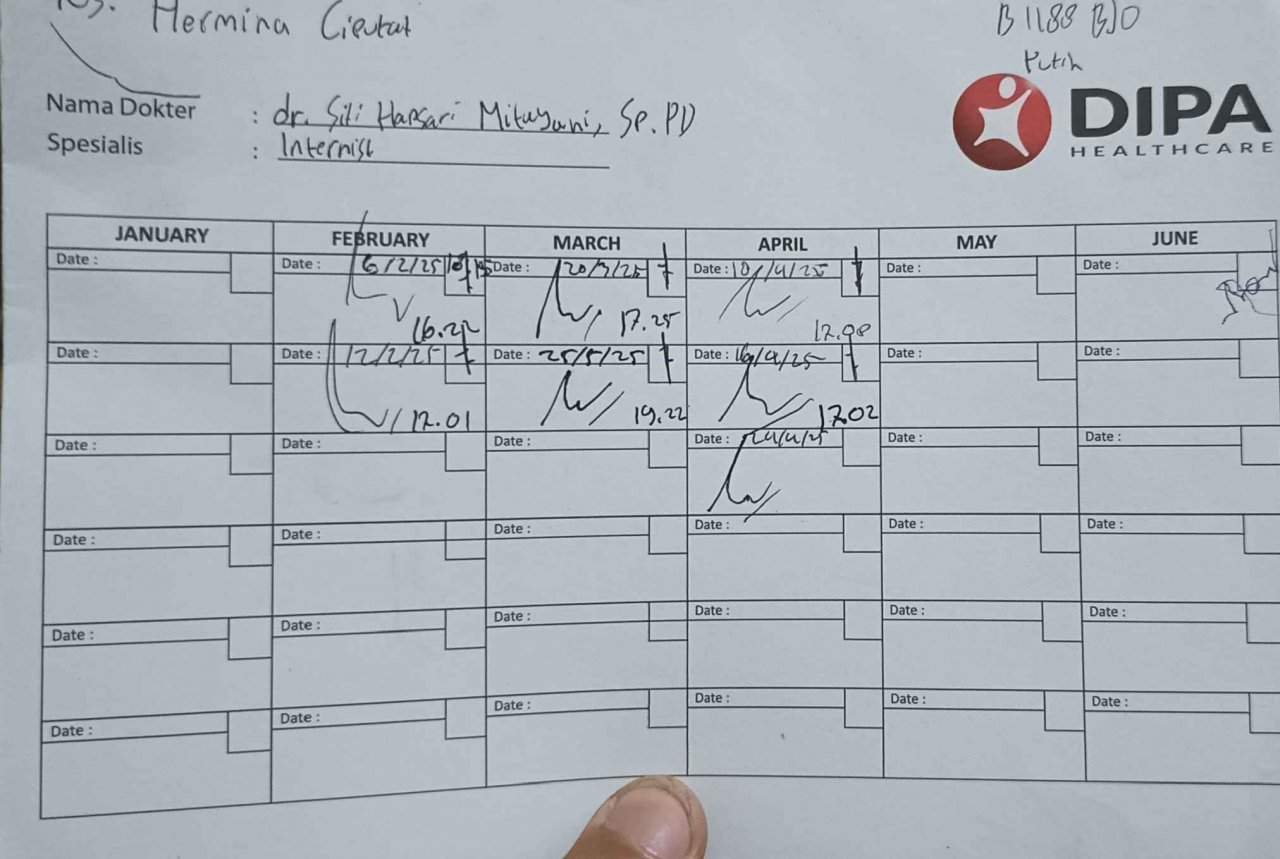 Hermina Ciputat
B 1188 BJO
Putih
DIPA
HEALTHCARE
Nama Dokter : dr. Siti Hapsari Mitayani, Sp.PD
Spesialis : Internist
JANUARY FEBRUARY MARCH APRIL MAY JUNE
Date : Date : 6/2/25 Date : 20/3/25 Date : 10/4/25 Date : Date :
16.22 17.25 17.08
Date : Date : 12/2/25 Date : 25/5/25 Date : 16/4/25 Date : Date :
17.01 19.22 17.02
Date : Date : Date : Date : 24/4/25 Date : Date :
Date : Date : Date : Date : Date : Date :
Date : Date : Date : Date : Date : Date :
Date : Date : Date : Date : Date : Date :